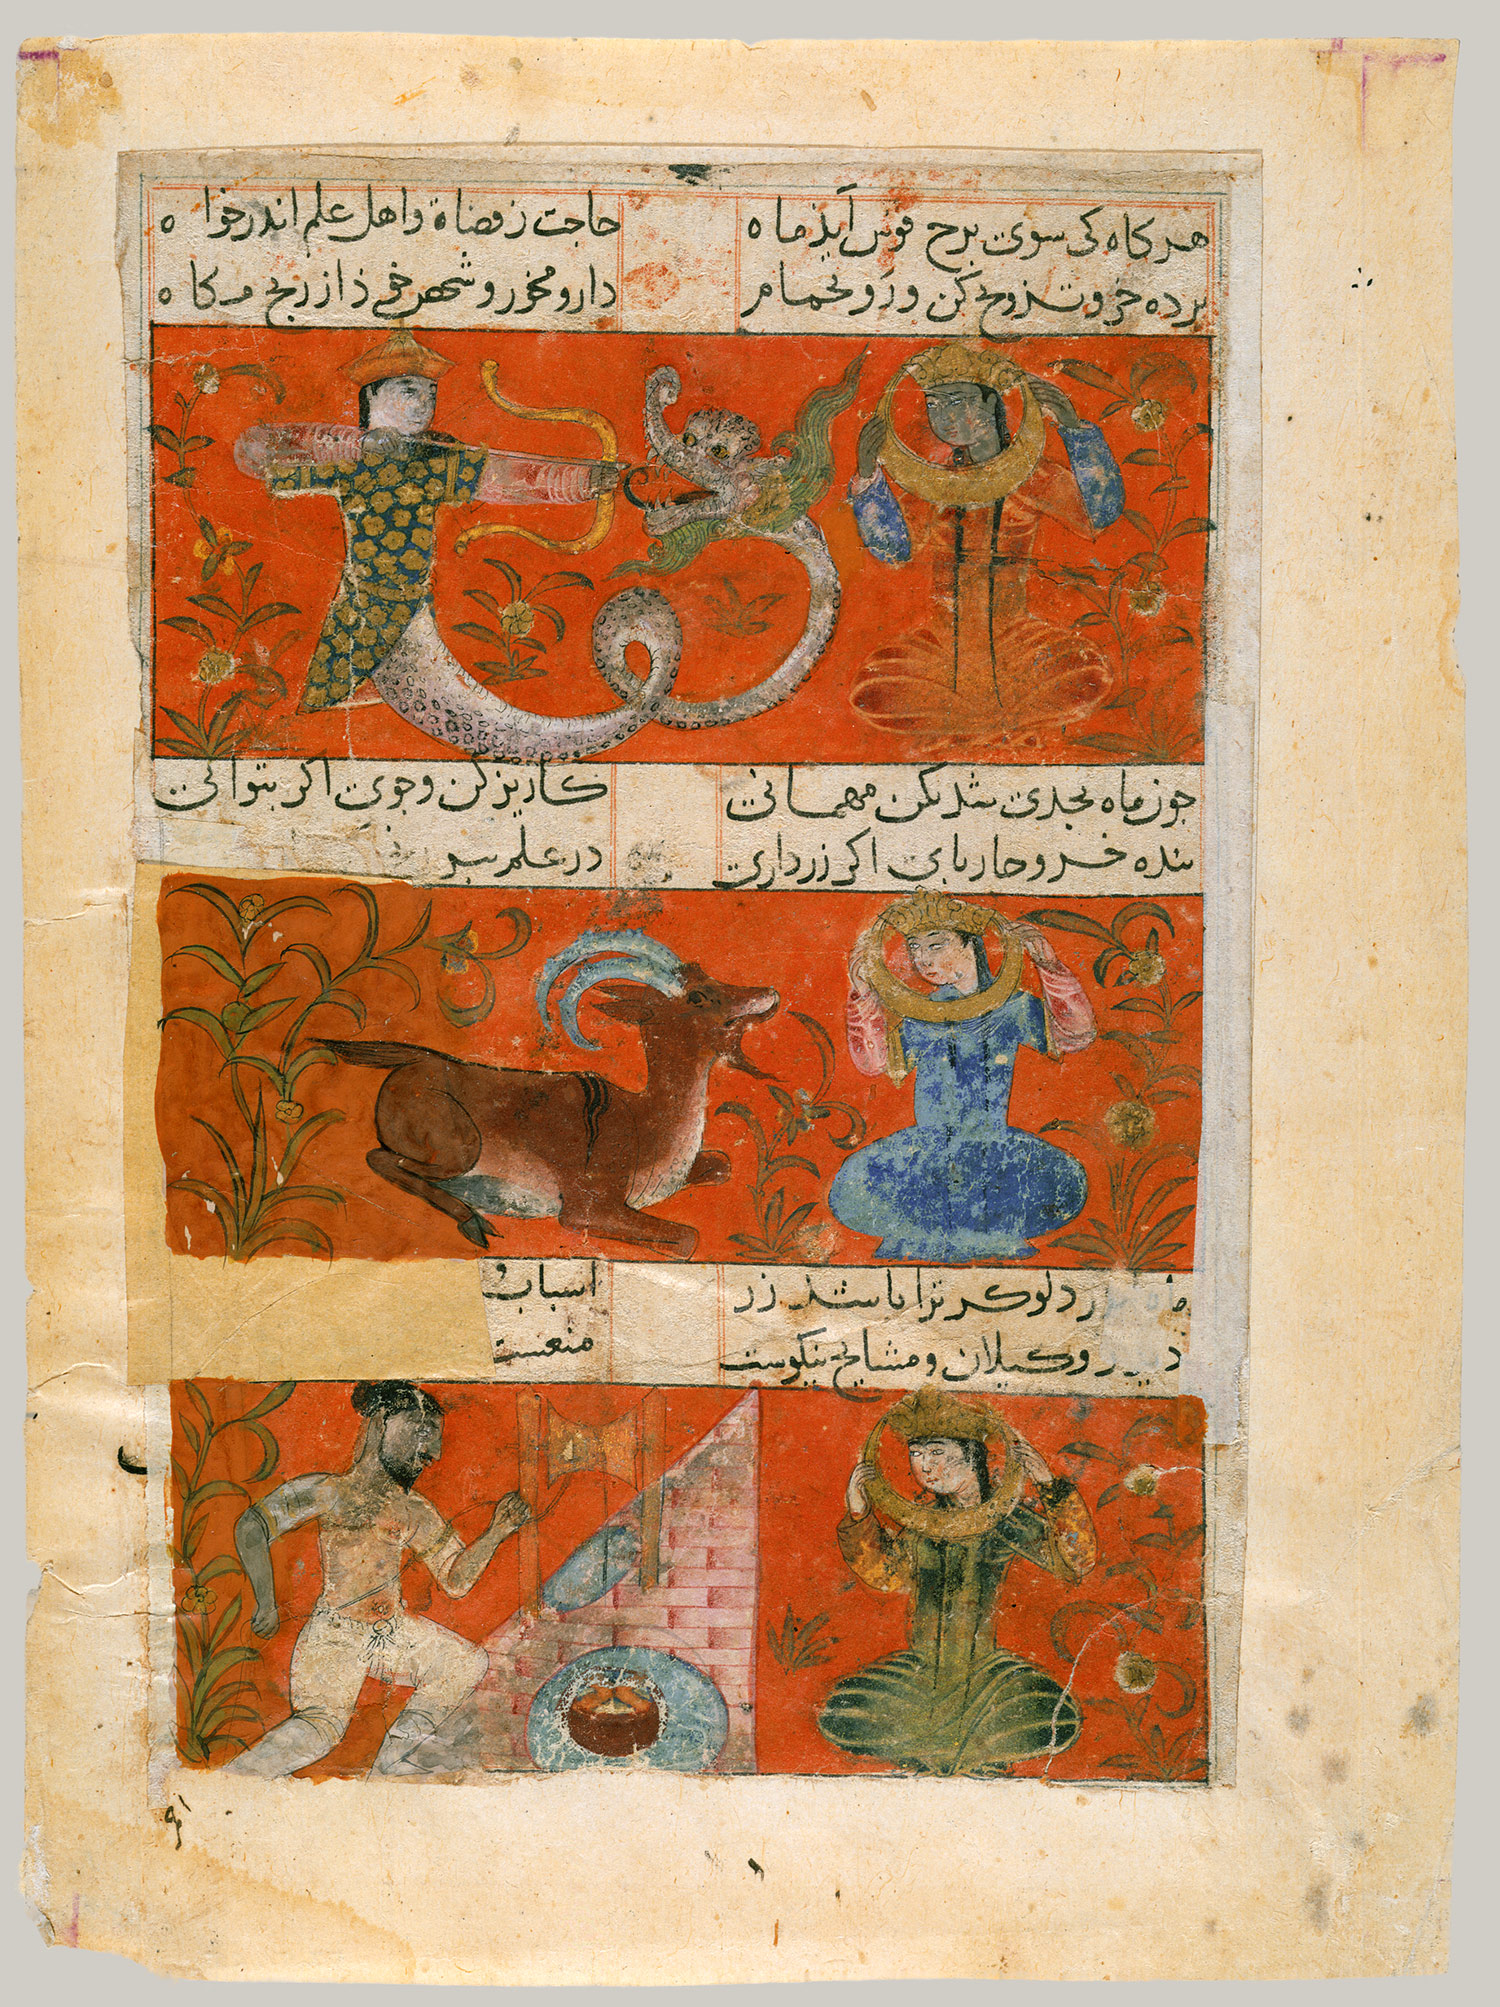 هر کاه کی سوی برج قوس آیذ ماه حاجت ز قضاة و اهل علم اندر خواه
برده خر و تزویج کن و رو بحمام دارو مخور و
جون ماه بجدی شد بکن مهمانی کاریز کن و جوی اکر بتوانی
بنده خر و چاربای اکر زر داری در علم
در دلو کر ترا باشد زر اسباب و
وکیلان و مشایخ نیکوست منعست